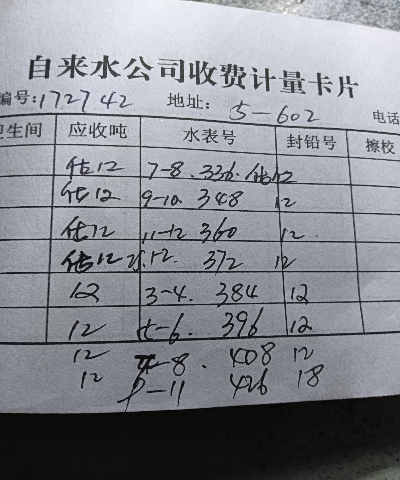 自来水公司收费计量卡片
编号: 172742 地址: 5-602 电话
卫生间 应收吨 水表号 封铅号 擦校
估12 7-8. 336. 估12
估12 9-10. 348 12
估12 11-12 360 12.
估12 1-2. 372 12
12 3-4. 384 12
12 5-6. 396 12
12 7-8. 408 12
12 9-11 426 18